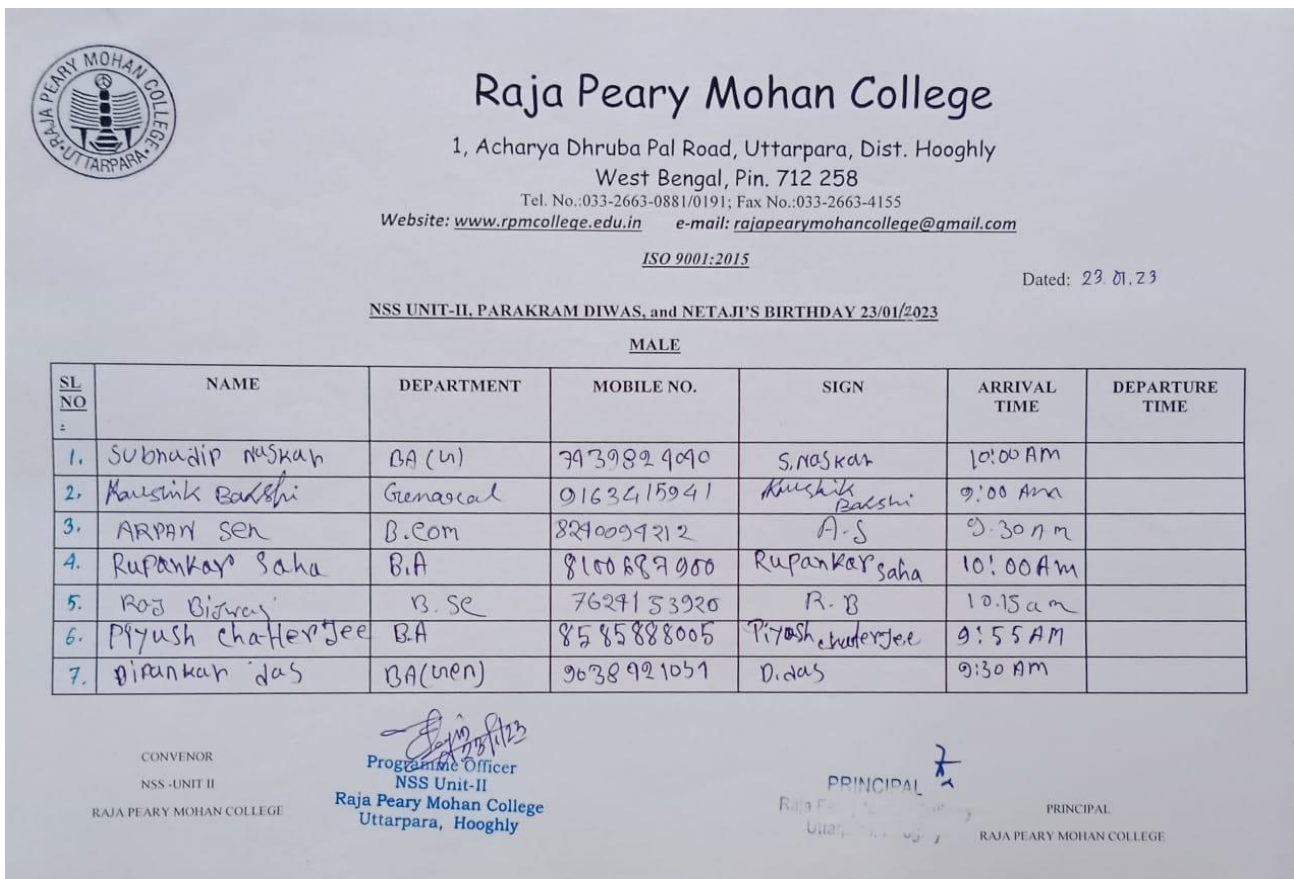 RAJA PEARY MOHAN COLLEGE
UTTARPARA
Raja Peary Mohan College
1, Acharya Dhruba Pal Road, Uttarpara, Dist. Hooghly
West Bengal, Pin. 712 258
Tel. No.:033-2663-0881/0191; Fax No.:033-2663-4155
Website: www.rpmcollege.edu.in e-mail: rajapearymohancollege@gmail.com
ISO 9001:2015
Dated: 23.01.23
NSS UNIT-II, PARAKRAM DIWAS, and NETAJI'S BIRTHDAY 23/01/2023
MALE
SL NO : NAME DEPARTMENT MOBILE NO. SIGN ARRIVAL TIME DEPARTURE TIME
1. Subhadip Naskar BA (G) S. Naskar 10:00 AM
2. Kaushik Bakshi Genareal 9163415941 Kaushik Bakshi 9:00 AM
3. ARPAN Sen B.Com A-S 9.30 AM
4. Rupankar Saha B.A Rupankar Saha 10:00 AM
5. Roj Biswas B.SC R.B 10.15 am
6. Piyush Chatterjee B.A 8585888005 Piyush Chaterjee 9:55 AM
7. Dipankar das BA(Gen) D.das 9:30 AM
23/1/23
CONVENOR
NSS -UNIT II
RAJA PEARY MOHAN COLLEGE
Programme Officer
NSS Unit-II
Raja Peary Mohan College
Uttarpara, Hooghly
PRINCIPAL
PRINCIPAL
RAJA PEARY MOHAN COLLEGE